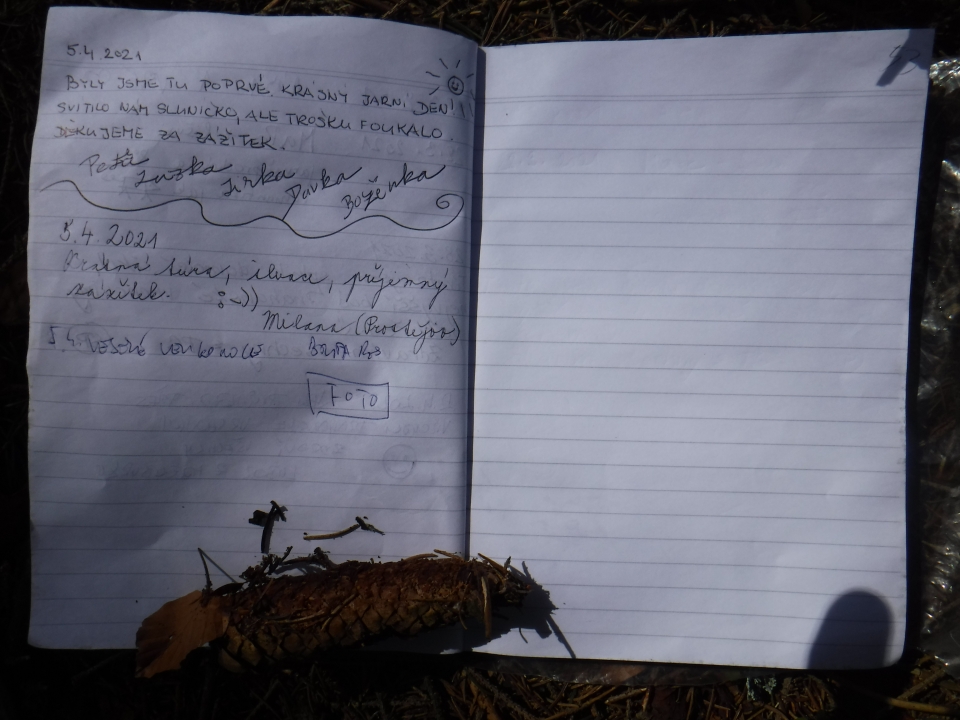 5.4.2021
BYLY JSME TU POPRVÉ. KRÁSNÝ JARNÍ DEN!
SVÍTILO NÁM SLUNÍČKO, ALE TROŠKU FOUKALO.
DĚKUJEME ZA ZÁŽITEK.
Peťa Luzka Jirka Davka Boženka
5.4.2021
Krásná túra, situace, příjemný
zážitek. :-))
Milana (Prostějov)
5.4. VESELÉ VELIKONOCE
FOTO